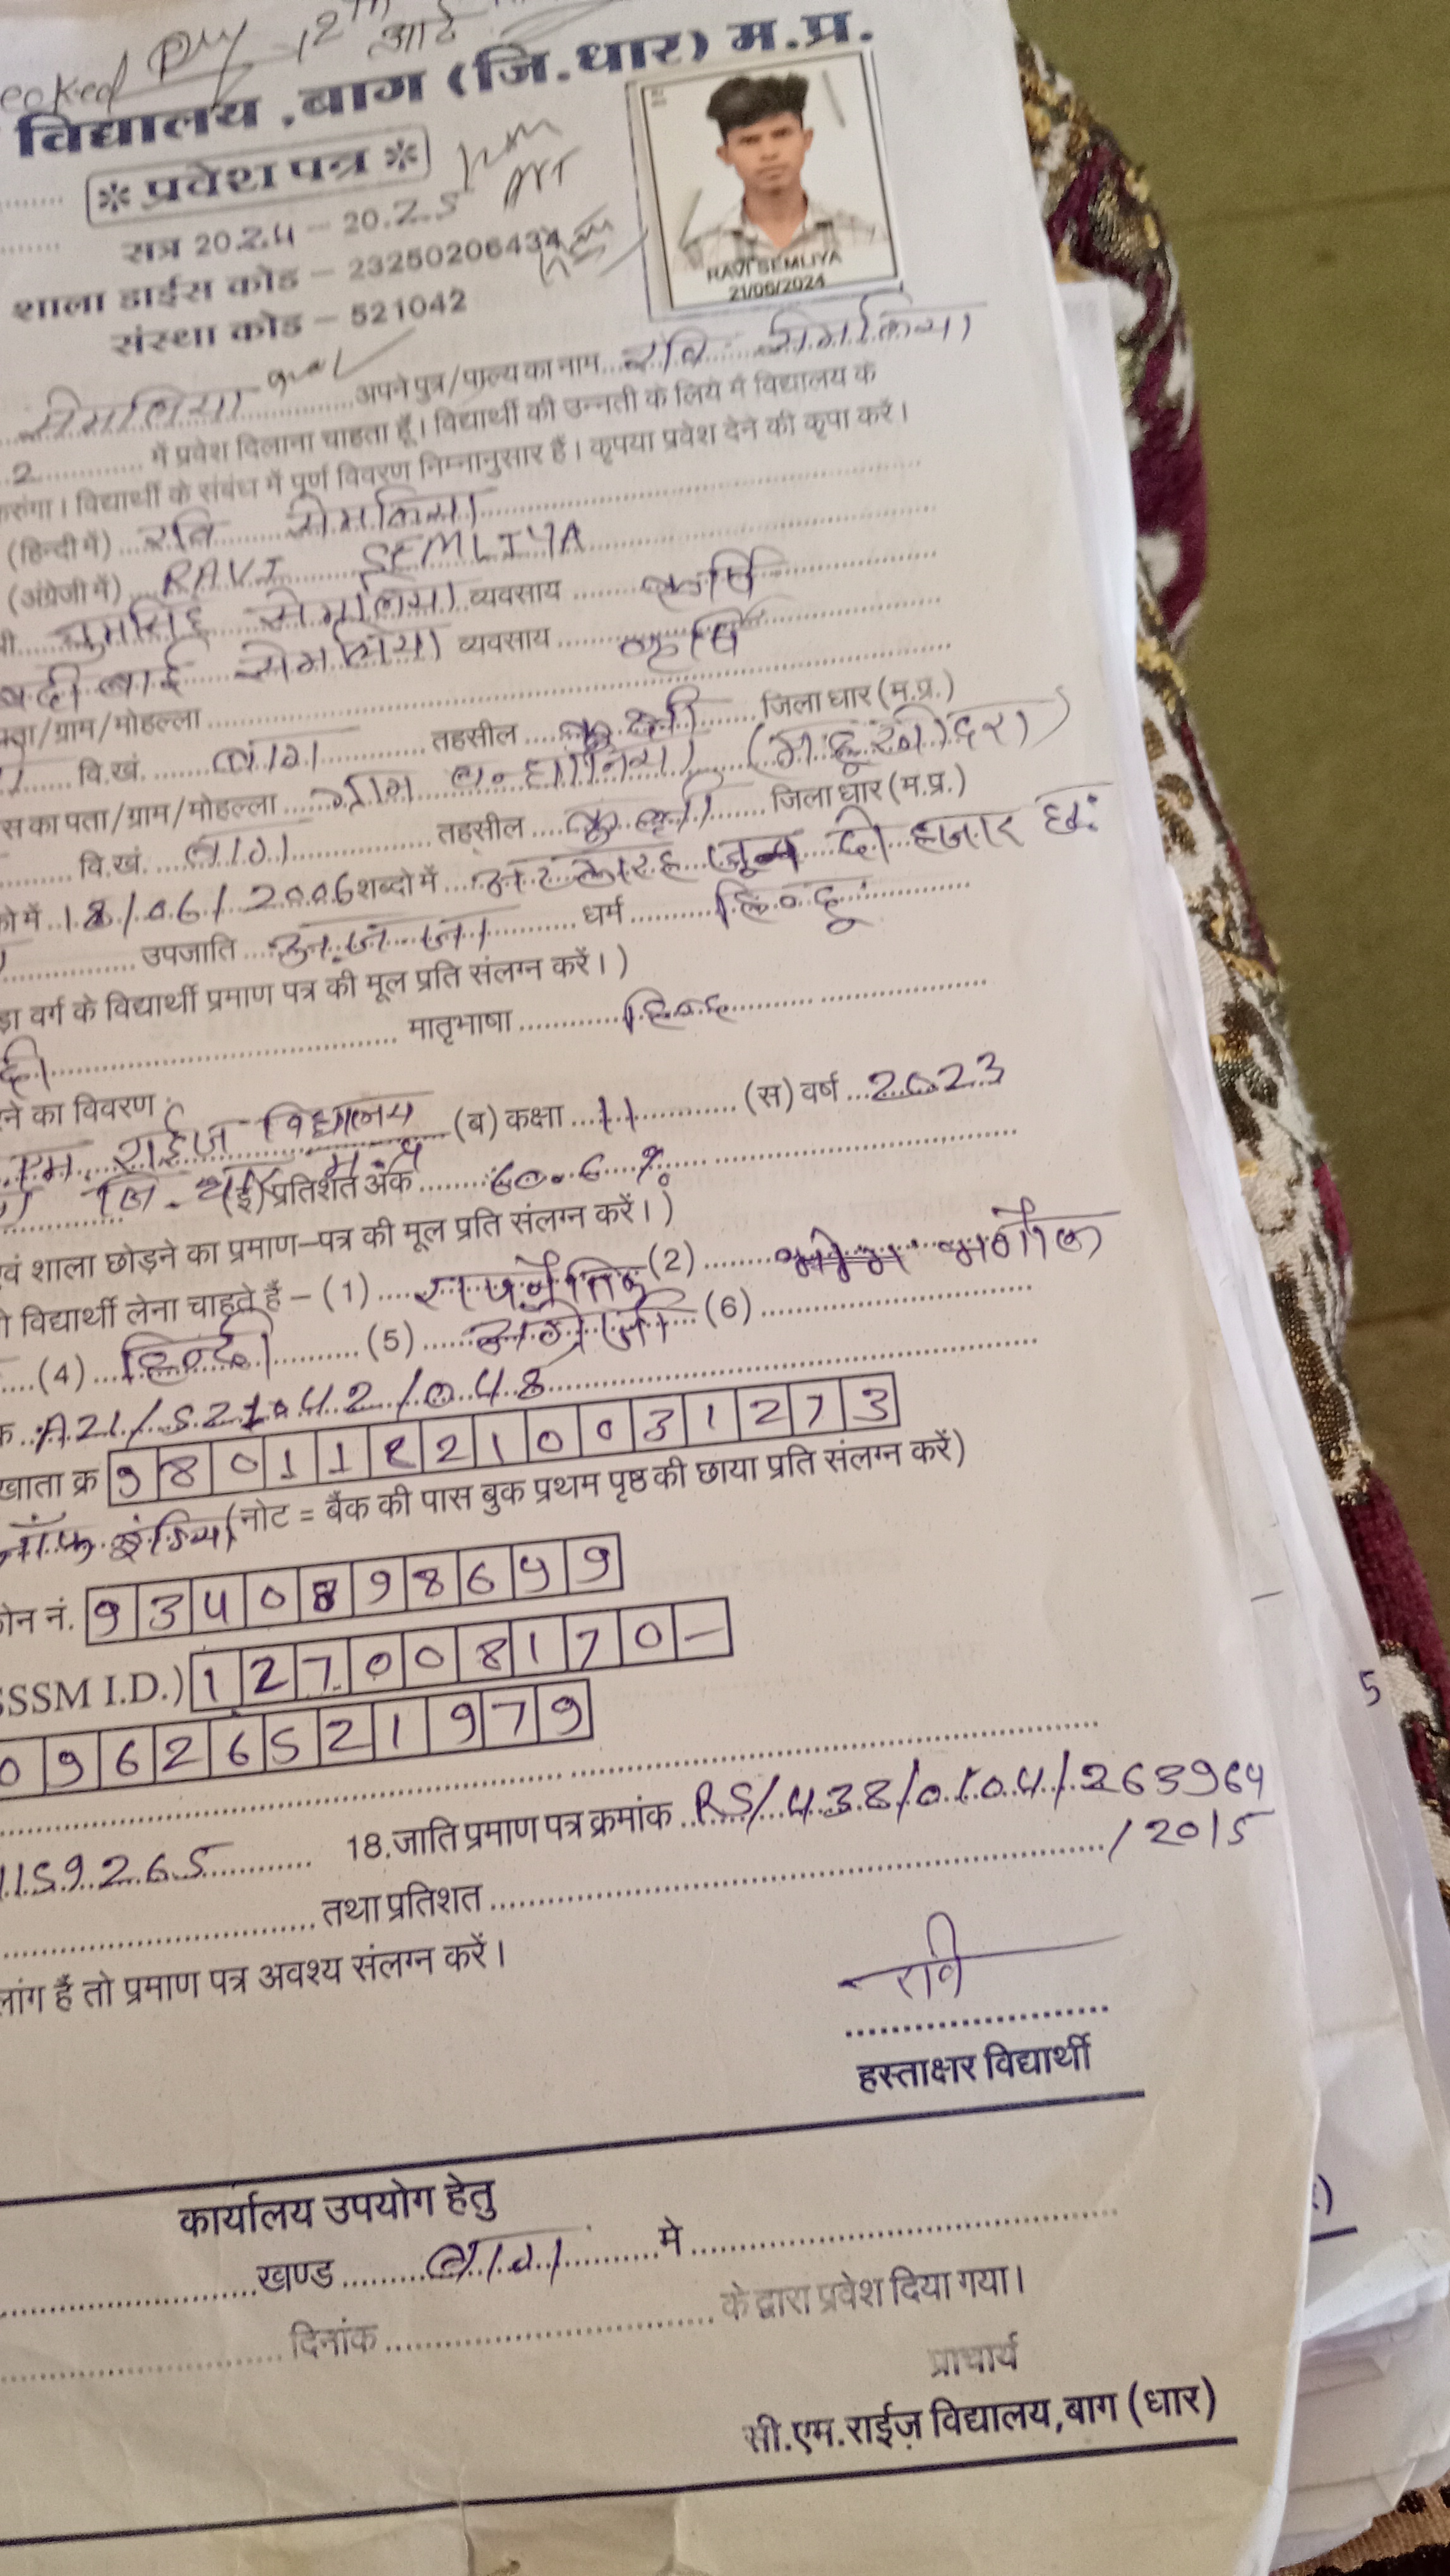 12th
आर्ट
विद्यालय ,बाग (जि.धार) म.प्र.
* प्रवेश पत्र *
सत्र 2024 – 2025
शाला डाईस कोड – 23250206434
संस्था कोड – 521042
RAVI SEMLIYA
21/06/2024
सेमलिया अपने पुत्र/पाल्य का नाम रवि सेमलिया
2 में प्रवेश दिलाना चाहता हूँ। विद्यार्थी की उन्नती के लिये मैं विद्यालय के
करुंगा। विद्यार्थी के संबंध में पूर्ण विवरण निम्नानुसार हैं। कृपया प्रवेश देने की कृपा करें।
(हिन्दी में) रवि सेमलिया
(अंग्रेजी में) RAVI SEMLIYA
सेमलिया व्यवसाय कृषि
बाई सेमलिया व्यवसाय कृषि
पता/ग्राम/मोहल्ला
वि.खं. बाग तहसील कुक्षी जिला धार (म.प्र.)
स का पता/ग्राम/मोहल्ला ग्राम
वि.खं. बाग तहसील कुक्षी जिला धार (म.प्र.)
में 18/06/2006 शब्दो में अठारह जून दो हजार छः
उपजाति अ.ज.जा धर्म हिन्दू
ड़ा वर्ग के विद्यार्थी प्रमाण पत्र की मूल प्रति संलग्न करें।)
दी मातृभाषा हिन्द
ने का विवरण
एम. राईज विद्यालय (ब) कक्षा 11 (स) वर्ष 2023
जि. धार म.प्र (ई) प्रतिशत अंक 60.6 %
वं शाला छोड़ने का प्रमाण–पत्र की मूल प्रति संलग्न करें।)
विद्यार्थी लेना चाहते हैं – (1) राजनैतिक (2) भूगोल
(4) हिन्दी (5) अंग्रेजी (6)
A21/521042/048
खाता क्र 9 8 0 1 1 8 2 1 0 0 3 1 2 7 3
ऑफ इंडिया (नोट = बैंक की पास बुक प्रथम पृष्ठ की छाया प्रति संलग्न करें)
फोन नं. 9 3 4 0 8 9 8 6 4 9
SSSM I.D.) 1 2 7 0 0 8 1 7 0 –
0 9 6 2 6 5 2 1 9 7 9
159265 18.जाति प्रमाण पत्र क्रमांक RS/438/0104/263964
/2015
तथा प्रतिशत
लांग हैं तो प्रमाण पत्र अवश्य संलग्न करें।
रवि
हस्ताक्षर विद्यार्थी
कार्यालय उपयोग हेतु
खण्ड बाग मे
दिनांक के द्वारा प्रवेश दिया गया।
प्राचार्य
सी.एम.राईज़ विद्यालय,बाग (धार)
5